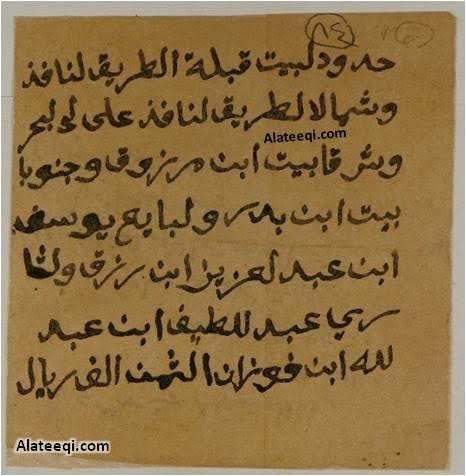 ٨٤
حدود لبيت قبلة الطريق لنافذ
وشمالا لطريق لنافذ على لبحر
Alateeqi.com
وشرقا بيت ابن مرزوق وجنوبا
بيت ابن بدر ولبايع يوسف
ابن عبد لعزيز ابن رزق ولشا
ري عبد للطيف ابن عبد
لله ابن فوزان الثمن الف ريال
Alateeqi.com